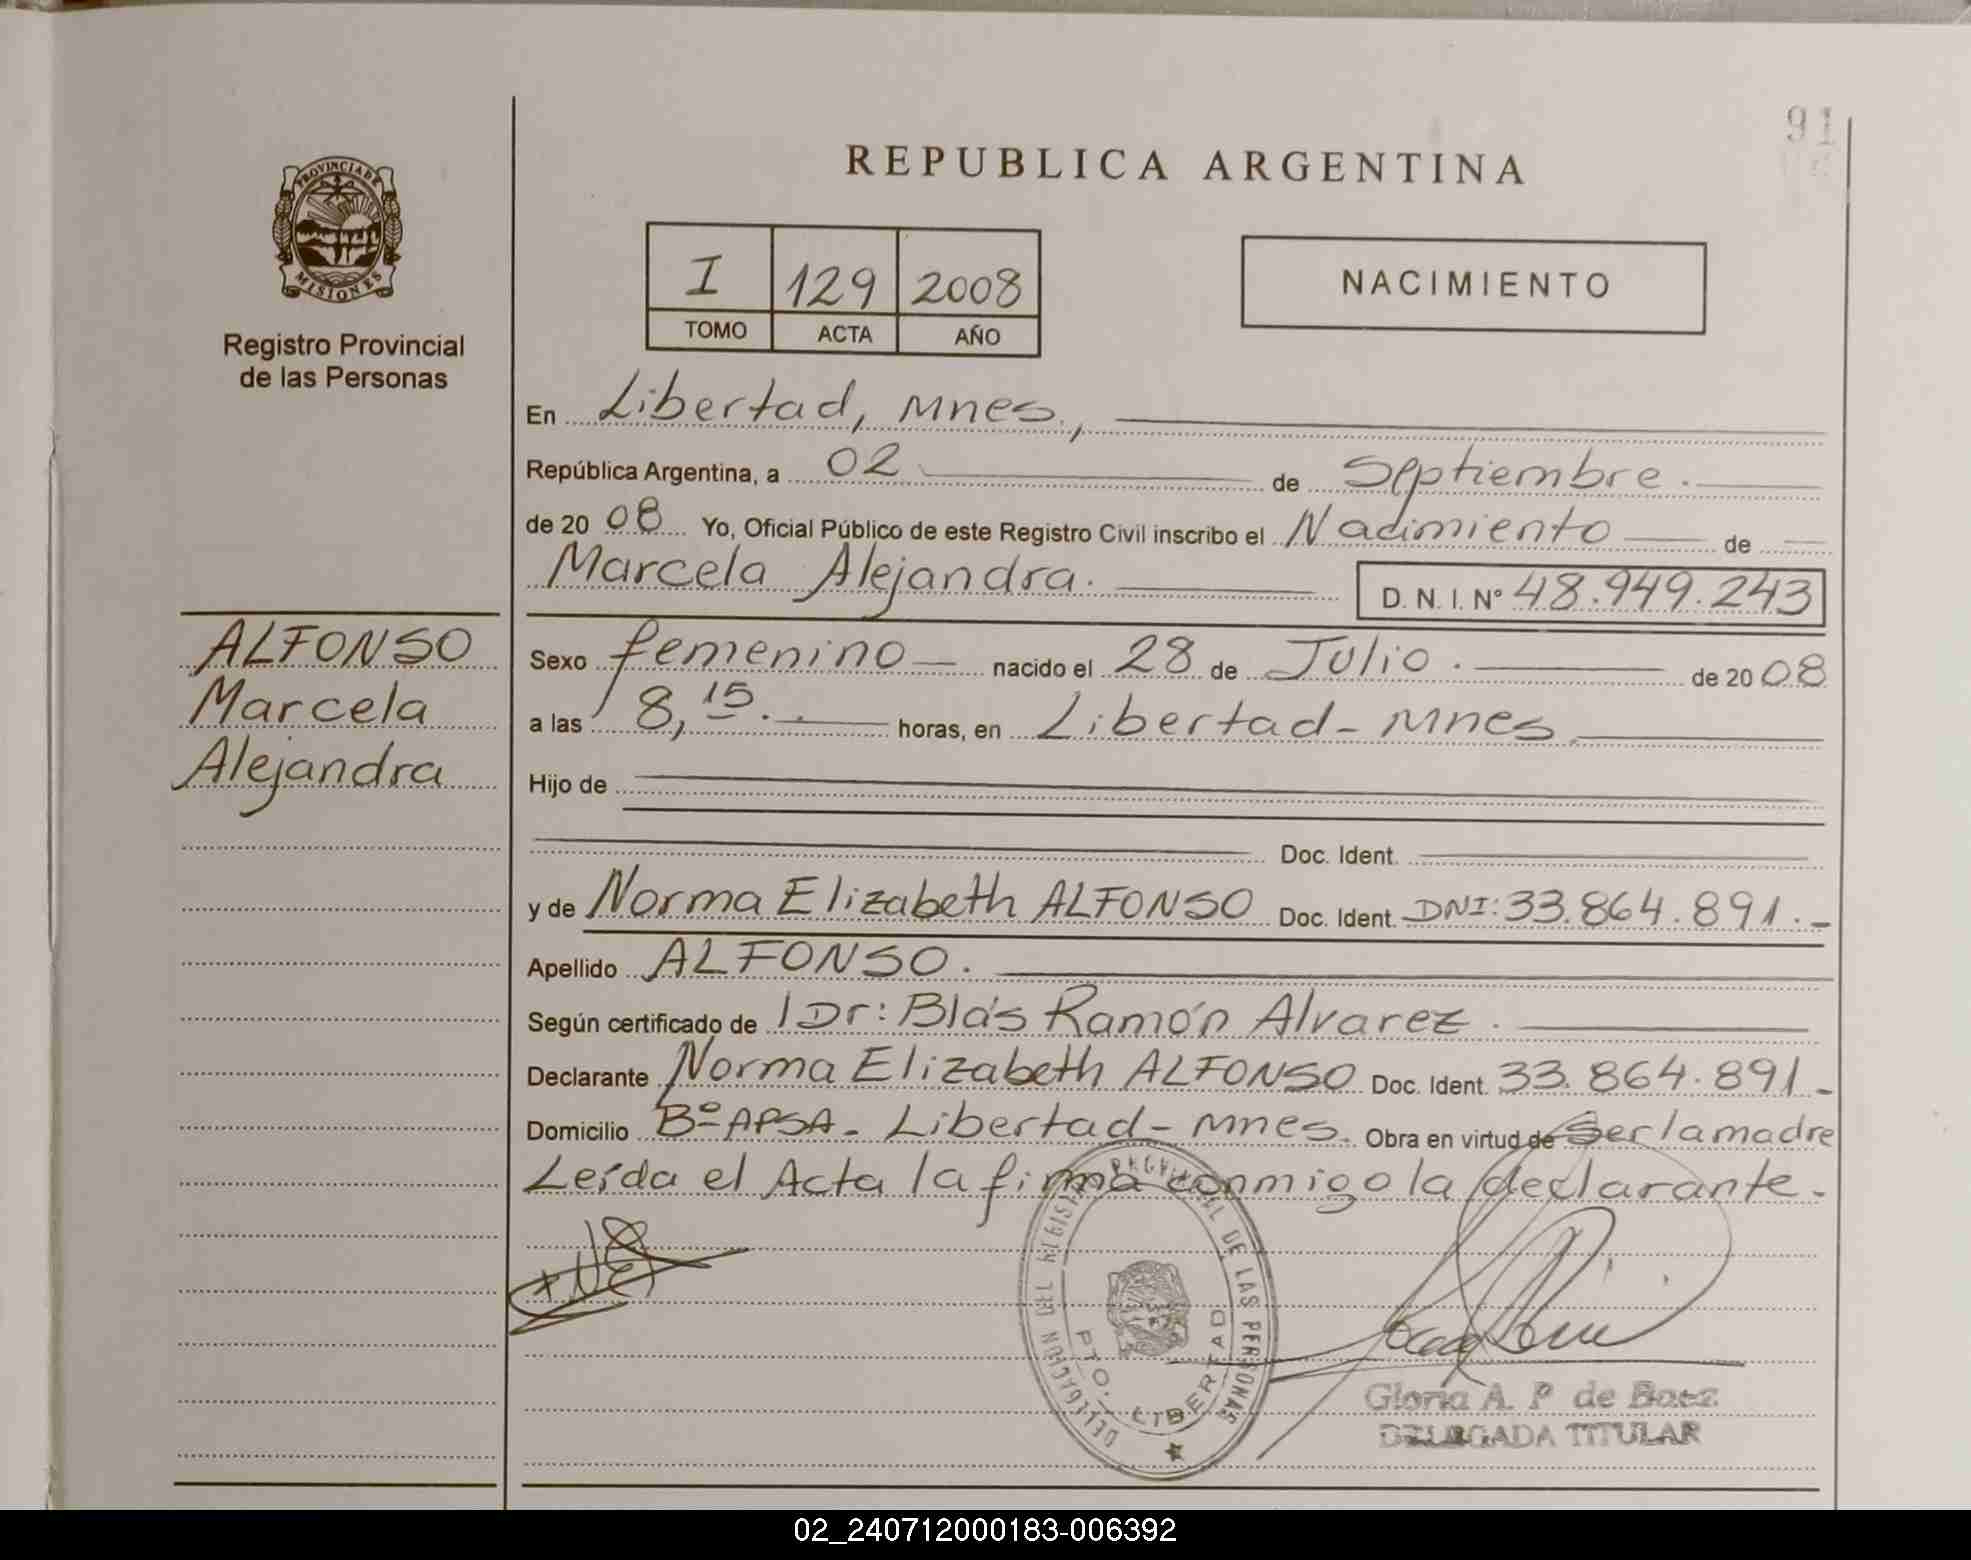 91
REPUBLICA ARGENTINA
PROVINCIA DE
MISIONES
Registro Provincial
de las Personas
I 129 2008
TOMO ACTA AÑO
NACIMIENTO
En Libertad, Mnes.,
República Argentina, a 02 de Septiembre.
de 20 08 Yo, Oficial Público de este Registro Civil inscribo el Nacimiento de
Marcela Alejandra. D. N. I. N° 48.949.243
ALFONSO
Marcela
Alejandra
Sexo femenino nacido el 28 de Julio. de 20 08
a las 8,15. horas, en Libertad - Mnes.
Hijo de
Doc. Ident.
y de Norma Elizabeth ALFONSO Doc. Ident. DNI: 33.864.891.-
Apellido ALFONSO.
Según certificado de Dr: Blás Ramón Alvarez.
Declarante Norma Elizabeth ALFONSO Doc. Ident. 33.864.891.-
Domicilio Bº APSA - Libertad - Mnes. Obra en virtud de Ser la madre
Leída el Acta la firma conmigo la declarante.-
DELEGACION DEL REGISTRO PROVINCIAL DE LAS PERSONAS
PTO. LIBERTAD
Gloria A. P de Baez
DELEGADA TITULAR
02_240712000183-006392